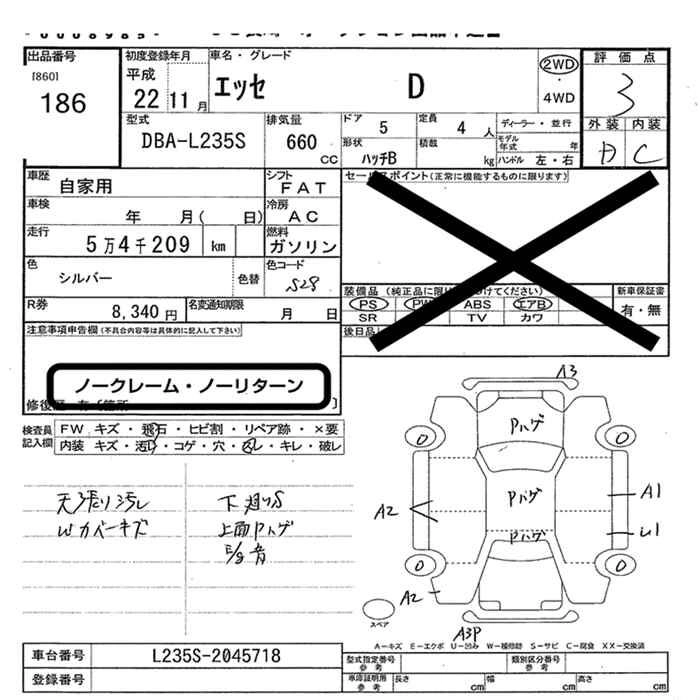 出品番号
[860]
186
初度登録年月
平成
22 11月
車名・グレード
エッセ D
2WD
・
4WD
評価点
3
型式
DBA-L235S
排気量
660
CC
ドア
5
定員
4 人
ディーラー・並行
モデル年式 年
外装 内装
D C
形状
ハッチB
積載
kg
ハンドル 左・右
車歴
自家用
シフト
FAT
セールスポイント(正常に機能するものに限ります)
車検
年 月( 日)
冷房
AC
走行
5万4千209 km
燃料
ガソリン
色
シルバー
色替
色コード
S28
装備品
新車保証書
PS PW ABS エアB
SR TV カワ
有・無
R券
8,340 円
名変通知期限
月 日
後日品
注意事項申告欄(不具合内容等は具体的に記入して下さい)
ノークレーム・ノーリターン
検査員
記入欄
FW キズ・飛石・ヒビ割・リペア跡・×要
内装 キズ・汚れ・コゲ・穴・スレ・キレ・破レ
天張り汚レ
Wカバーキズ
下廻りS
上面Pハゲ
A3
Pハゲ
Pハゲ
Pハゲ
A2
A1
U1
A2
A3P
スペア
A－キズ E－エクボ U－凹み W－補修跡 S－サビ C－腐食 XX－交換済
車台番号
L235S-2045718
登録番号
型式指定番号
参考
類別区分番号
参考
車庫証明用
参考
長さ cm
幅 cm
高さ cm